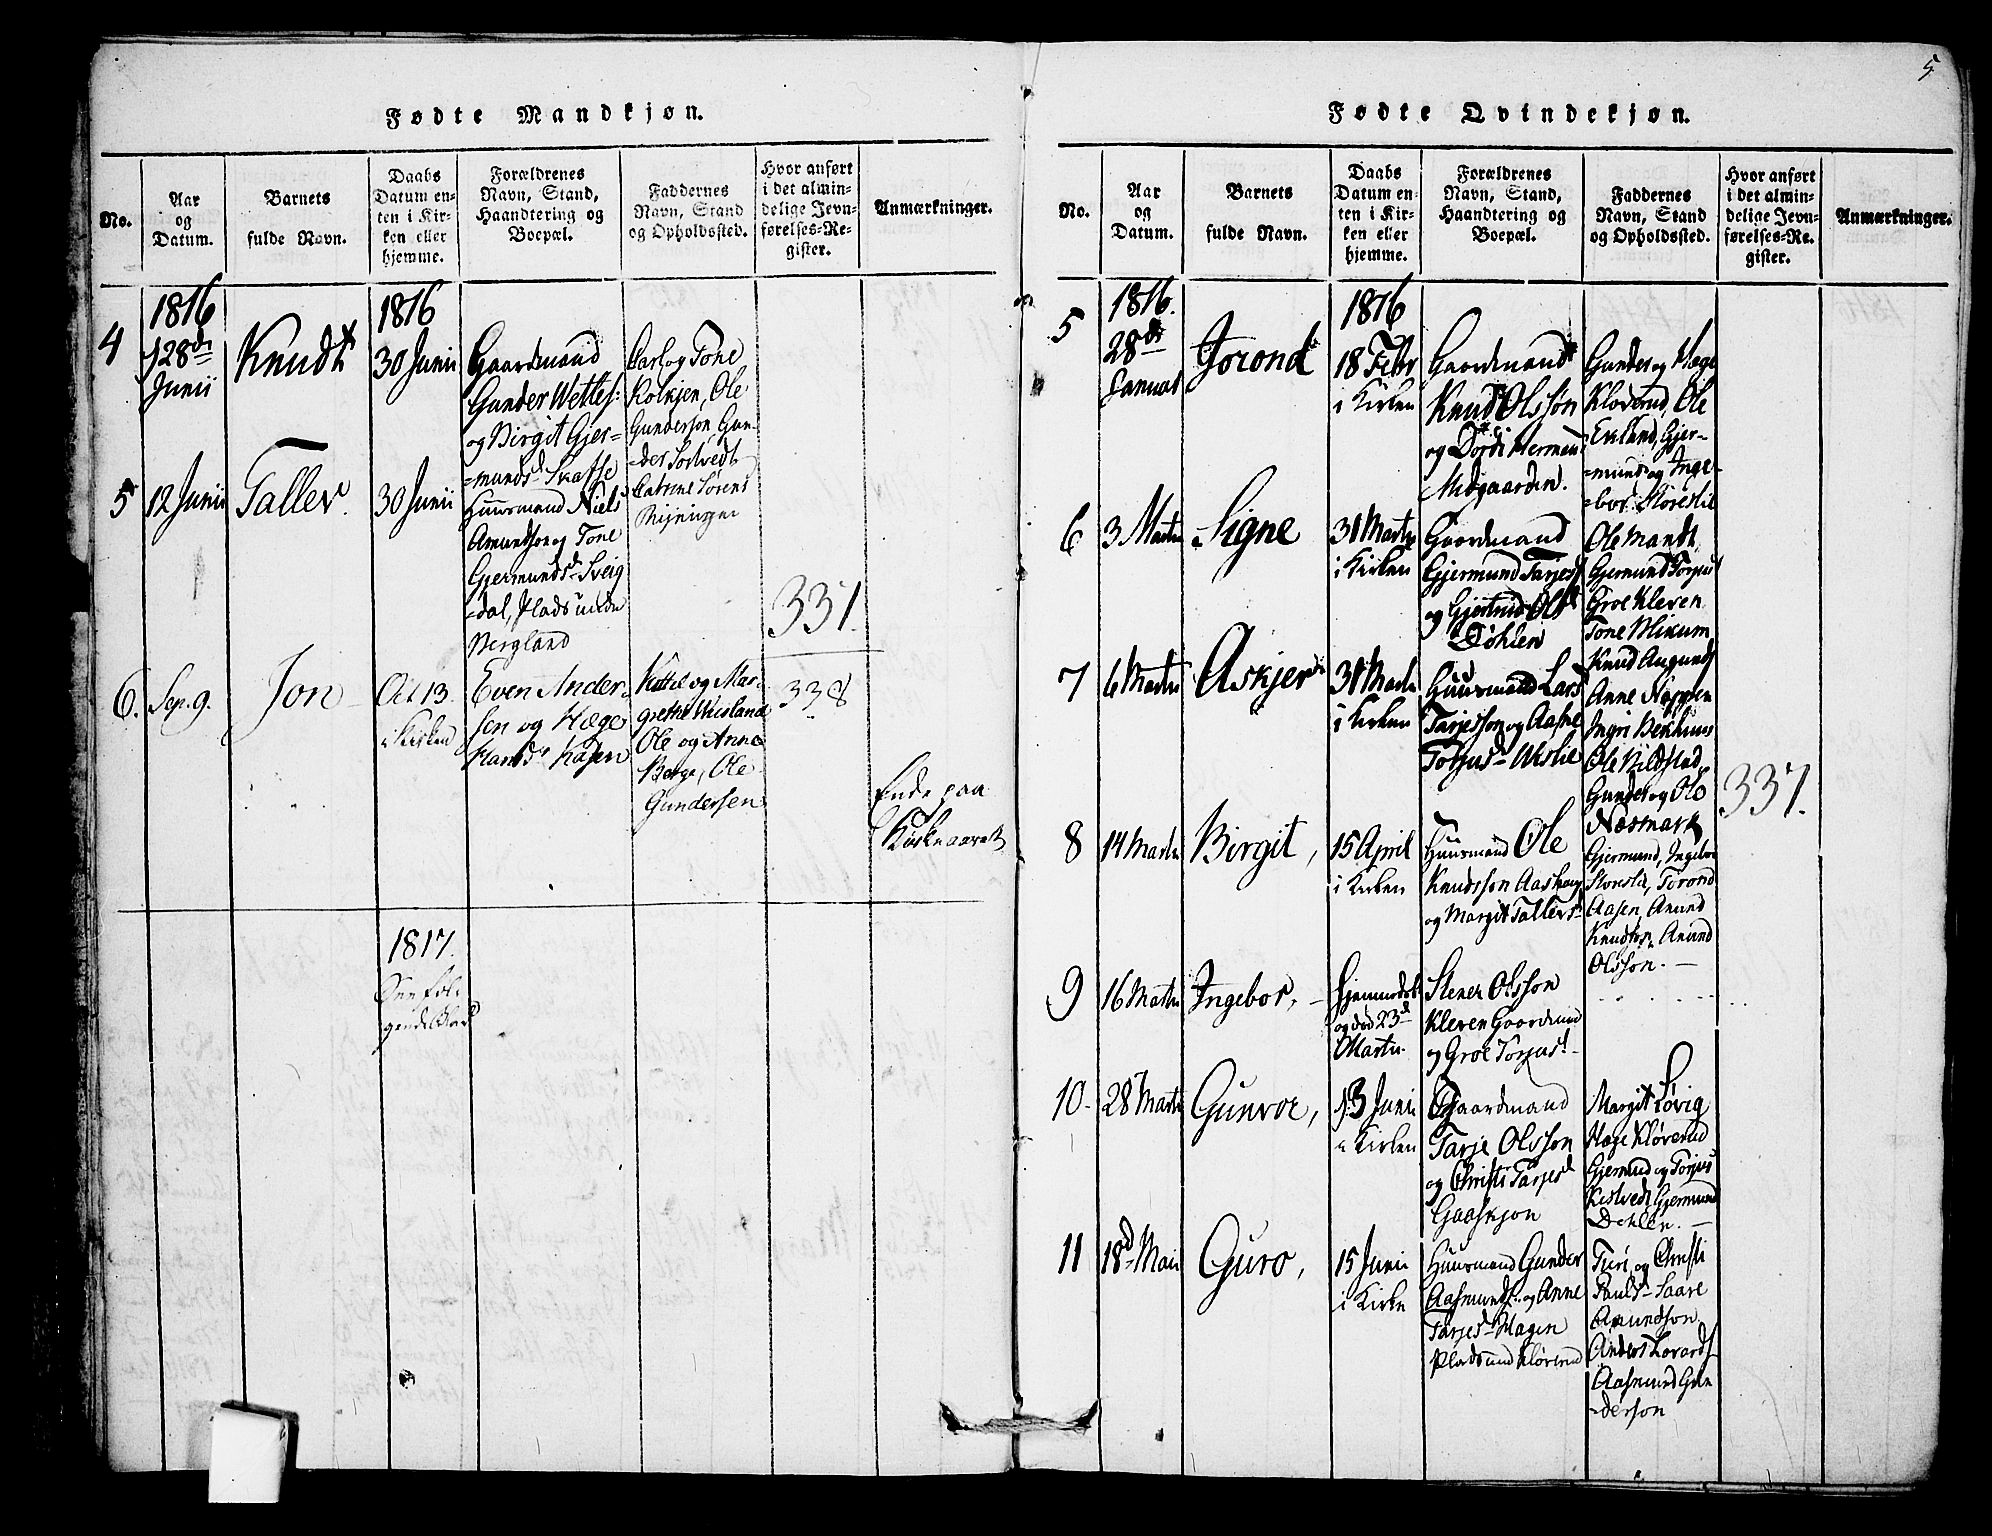 5
Fødte Mandkjøn.
No.
Aar
og
Datum.
Barnets
fulde Navn.
Daabs
Datum en-
ten i Kir-
ken eller
hjemme.
Forældrenes
Navn, Stand,
Haandtering og
Boepæl.
Faddernes
Navn, Stand
og Opholdssted.
Hvor anført
i det almin-
delige Jevn-
førelses-Re-
gister.
Anmærkninger.
1816
1816
4
28de
Junii
Knudt
30 Junii
Gaardmand
Gunder Wetles:
og Birgit Gjer=
=munds d. Svafse
og Tone
Kolkjen, Ole
Gunderson Gun-
=der Sostvedt
Catrine Sørens
5
12 Junii
Tallev.
30 Junii
Huusmand Niels
Amundson og Tone
Gjermundsd Sveig
=dal, Plads unde
Bergland
337.
6.
Sep. 9.
Jon
Oct 13.
i Kirken
Even Ander-
sen og Hæge
Hansd. Kaasen
Kittel og Mar-
grethe Wiesland
Ole og Anne
Berge, Ole
Gundersen
338
Ende paa
Kirkeaaret
1817.
See føl-
gende Blad
Fødte Qvindekjøn.
No.
Aar
og
Datum.
Barnets
fulde Navn.
Daabs
Datum en-
ten i Kir-
ken eller
hjemme.
Forældrenes
Navn, Stand,
Haandtering og
Boepæl.
Faddernes
Navn, Stand
og Opholdssted.
Hvor anført
i det almin-
delige Jevn-
førelses-Re-
gister.
Anmærkninger.
1816.
1816
5
28de
Januar
Jorond
18 Febr
i Kirken
Gaardmand
Knud Olsson
og Dordi Herman
Midgaarden.
Gunder og Hæge
Kloverud, Ole
Eklund, Gjer-
=mund og Inge-
=bor Storeslie
6
3 Martii
Signe
31 Martii
i Kirken
Gaardmand
Gjermund Tarjess
og Gjertrud Ols d
Døhlen
Ole Mandt,
Gjermund Torjus
Groe Kleven
Tone Mikum
7
6 Martii
Askjer
31 Martii
i Kirken
Huusmand Lars
Tarjesson og Aasne
Torjusd Meslie
Knud Augunds
Anne Noppen
Ingri Bekhuus
Ole Kildstad
Gunder og Ole
Næsmark
337.
8
14 Martii
Birgit,
15 April
i Kirken
Huusmand Ole
Knudsson Aashaug
og Margit Tallevsd
Gjermund, Ingebor
Storeslie, Torond
Aasen, Amund
Knudson Amund
Olsson.
9
16 Martii
Ingebor,
hjemmedøbt
og død 23d
Martii.
Stener Olsson
Kleven Gaardmand
og Groe Torjusd
10.
28 Martii
Gunvor,
13 Junii
i Kirken
Gaardmand
Tarje Olsson
og Christi Tarjesd
Gaaskjon
Margit Løvig
Hæge Kløverud
Gjermund og Torjus
Kestvedt, Gjermund
Dehlen.
11
18d Maii
Guro,
15 Junii
i Kirke
Huusmand Gunder
Aasmunds. og Anne
Tarjesd Hagen
Plads und Kløverud
Turi og Christi
Paulsd Saare
Amundson
Anders Lovards
Aasmund Gun
=derson